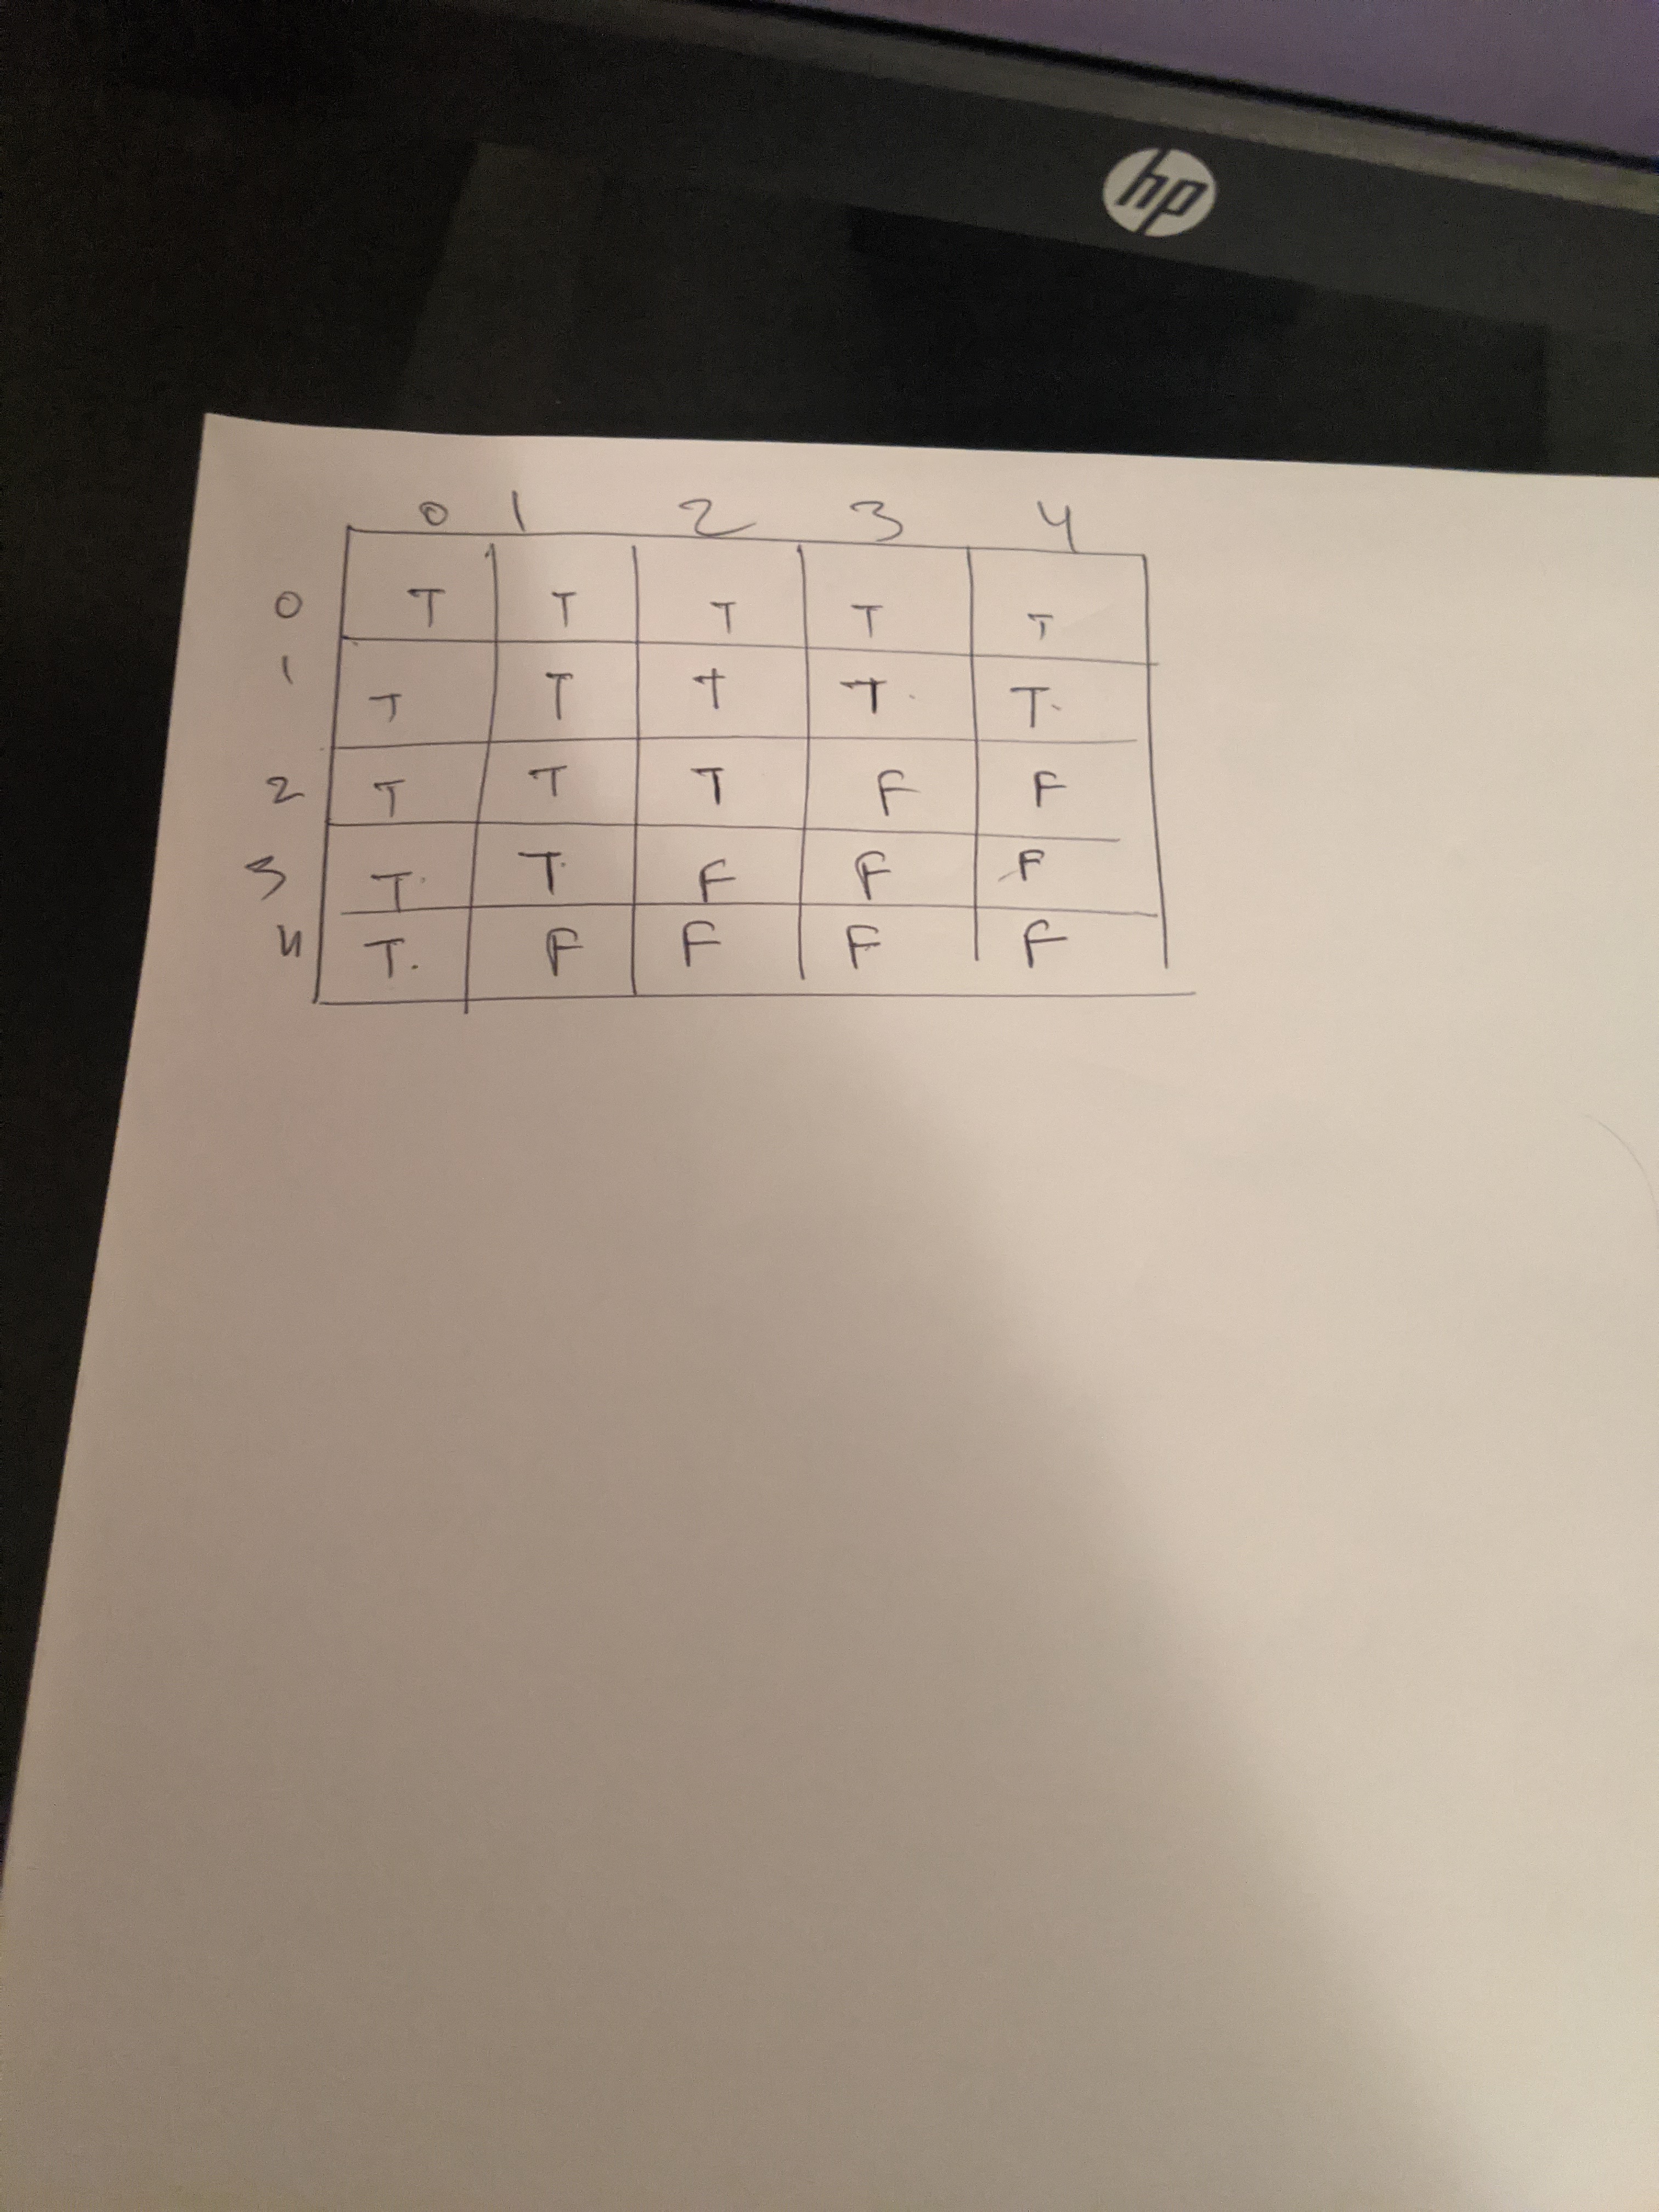 hp
0 1 2 3 4
0 T T T T T
1 T T T T. T.
2 T T T F F
3 T. T. F F F
4 T. F F F F